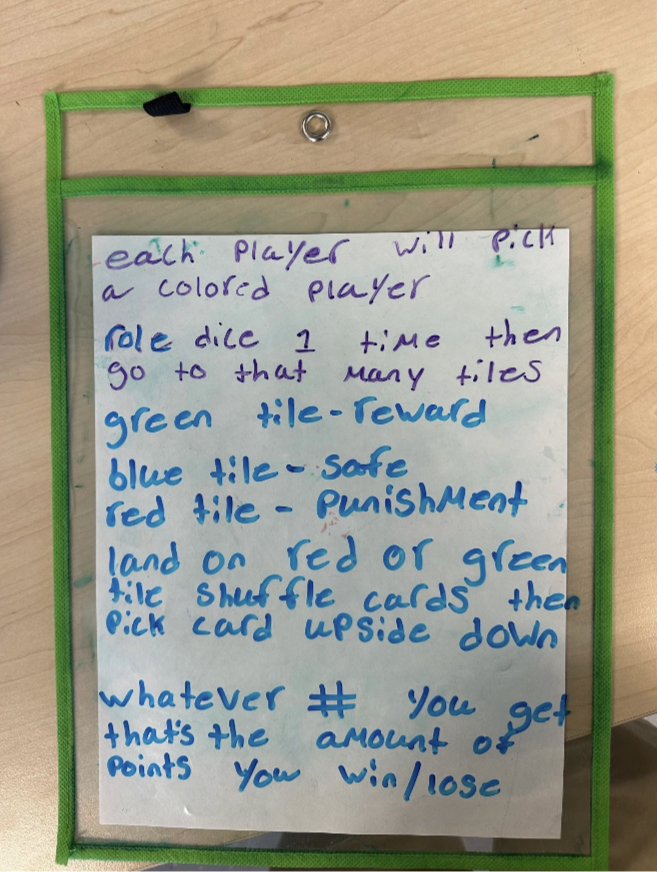 each player will pick
a colored player
role dice 1 time then
go to that many tiles
green tile-reward
blue tile - safe
red tile - punishment
land on red or green
tile shuffle cards then
pick card upside down
whatever # you get
that's the amount of
points you win/lose